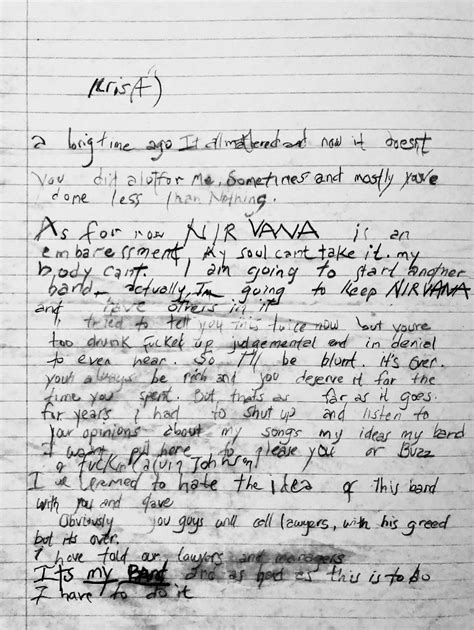 Kris(t)
a long time ago It all mattered and now it doesnt
You did alot for me. Sometimes and mostly you've
done less than Nothing.
As for now NIRVANA is an
embaressment, My soul cant take it. my
body cant. I am going to start another
band. actually, Im going to keep NIRVANA
and have others in it
I tried to tell you this twice now but youre
too drunk fucked up judgemental and in denial
to even hear. So I'll be blunt. It's over.
youll always be rich and you deserve it for the
time you spent. But, thats as far as it goes.
for years I had to shut up and listen to
your opinions about my songs my ideas my band
I want put here to please you or Buzz
a fuckin Calvin Johnson
I've learned to hate the idea of this band
with you and Dave
Obviously you guys will call lawyers, with his greed
but its over.
I have told our lawyers and managers
Its my BAND and as hard as this is to do
I have to do it